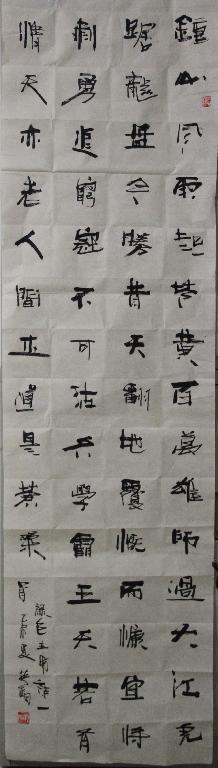 鍾山風雨起蒼黃百萬雄師過大江虎
踞龍盤今勝昔天翻地覆慨而慷宜將
剩勇追窮寇不可沽名學霸王天若有
情天亦老人間正道是滄桑
錄毛主席詩一
首